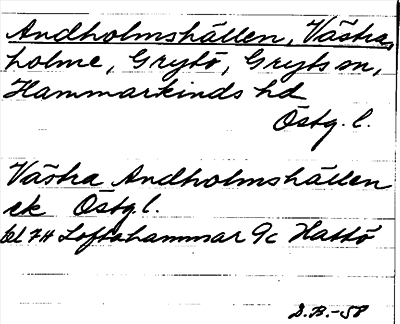 Andholmshällen, Västra,
holme, Grytö, Gryts sn,
Hammarkinds hd
Östg. l.
Västra Andholmshällen
ek Östg. l.
bl 7H Loftahammar 9c Hattö
D.B.-58